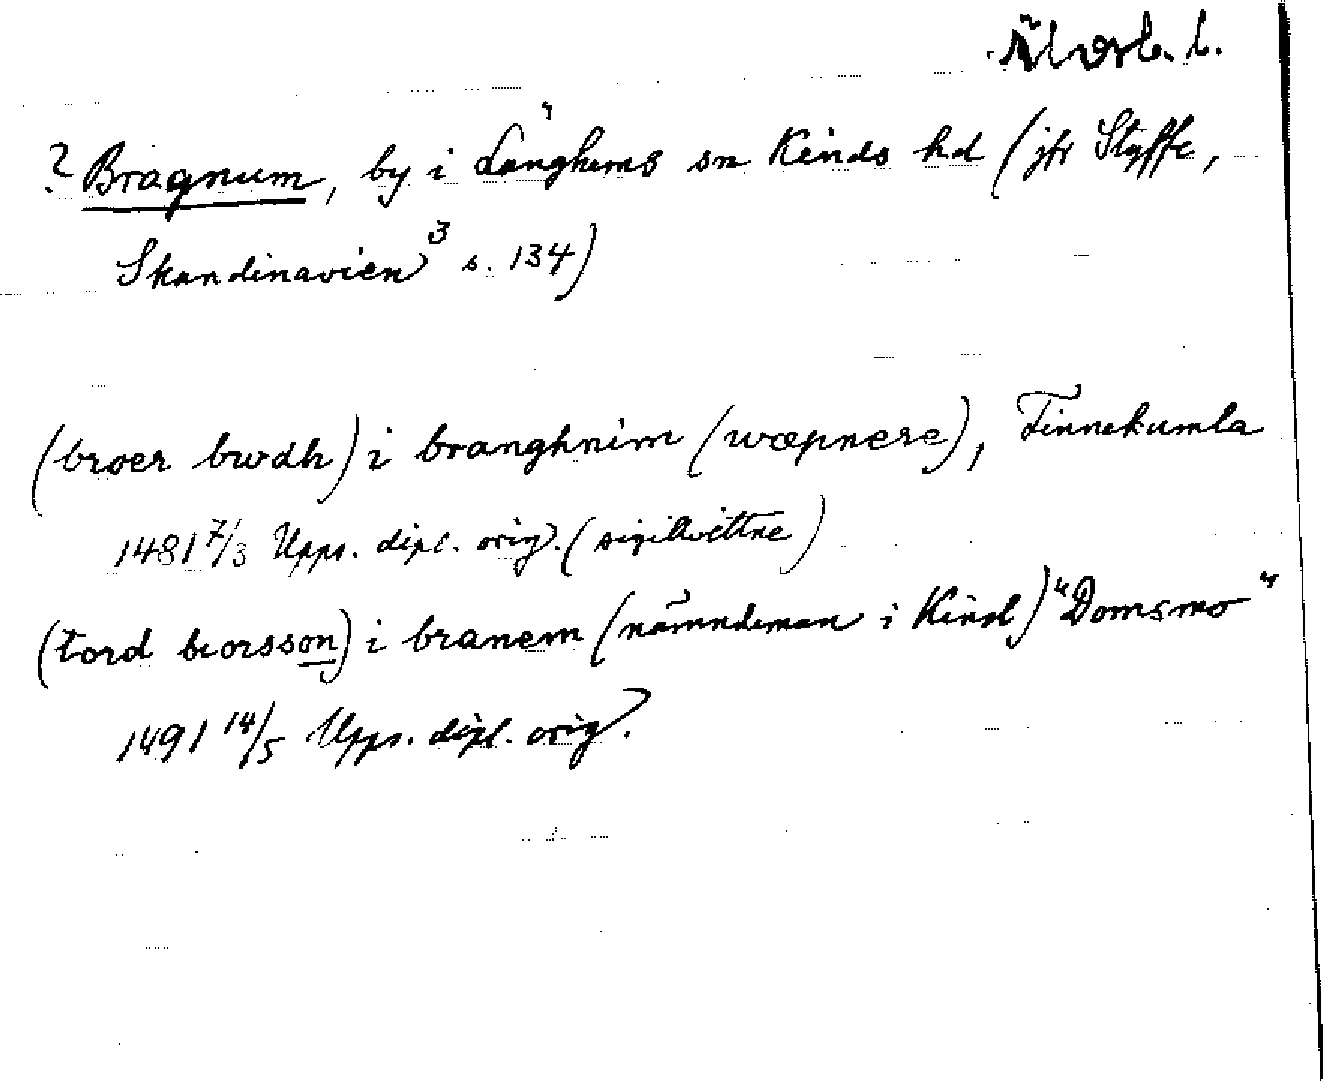 Älvsb. l.
? Bragnum, by i Länghems sn Kinds hd (jfr Styffe,
Skandinavien³ s. 134)
(broer bwdh) i branghnim (wæpnere), Finnekumla
1481 7/3 Upps. dipl. orig. (sigillvittne)
(tord biorsson) i branem (nämndeman i Kind) "Domsmo"
1491 14/5 Upps. dipl. orig.